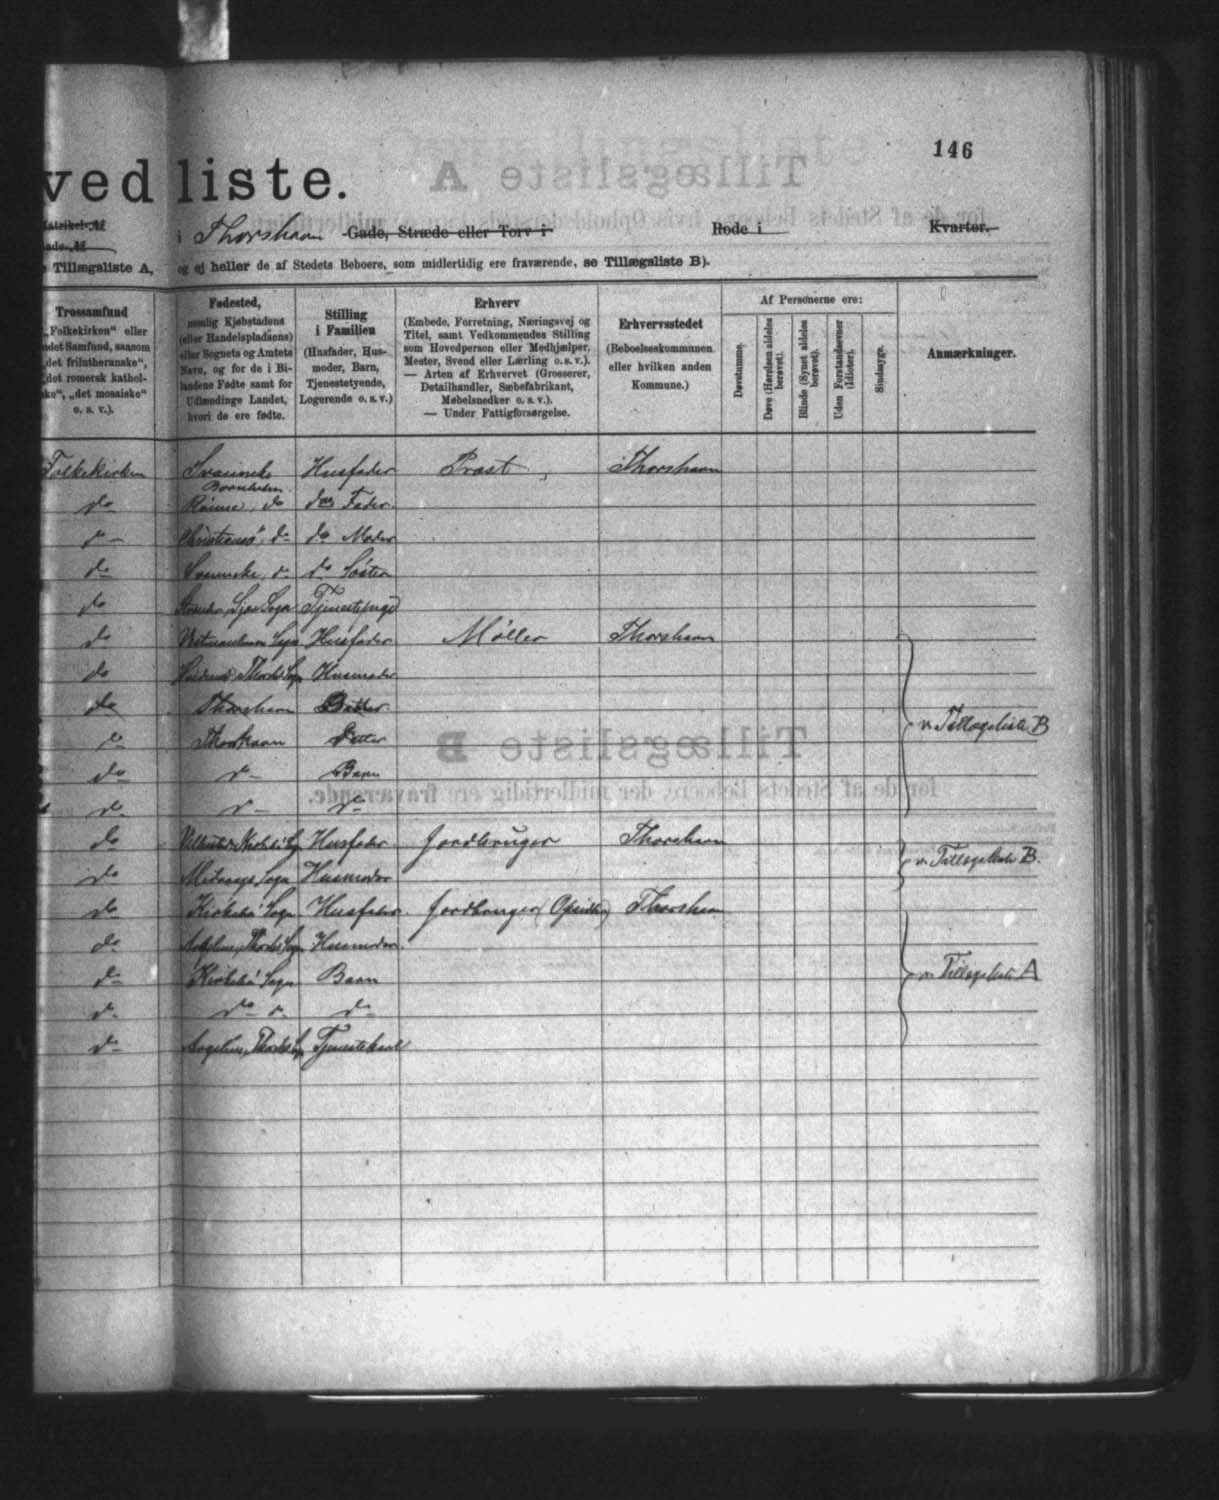 146
ved liste.
Matrikel-№ i Thorshavn Gade, Stræde eller Torv i Rode i Kvarter.
Tillægsliste A, og ej heller de af Stedets Beboere, som midlertidig ere fraværende, se Tillægsliste B).
Trossamfund
„Folkekirken“ eller
andet Samfund, saasom
„det frilutheranske“,
„det romersk kathol-
ske“, „det mosaiske“
o. s. v.).
Fødested,
nemlig Kjøbstadens
(eller Handelspladsens)
eller Sognets og Amtets
Navn, og for de i Bi-
landene Fødte samt for
Udlændinge Landet,
hvori de ere fødte.
Stilling
i Familien
(Husfader, Hus-
moder, Barn,
Tjenestetyende,
Logerende o. s. v.)
Erhverv
(Embede, Forretning, Næringsvej og
Titel, samt Vedkommendes Stilling
som Hovedperson eller Medhjælper,
Mester, Svend eller Lærling o. s. v.).
— Arten af Erhvervet (Grosserer,
Detailhandler, Sæbefabrikant,
Møbelsnedker o. s. v.).
— Under Fattigforsørgelse.
Erhvervsstedet
(Beboelseskommunen
eller hvilken anden
Kommune.)
Af Personerne ere:
Døvstumme.
Døve (Hørelsen aldeles
berøvet).
Blinde (Synet aldeles
berøvet).
Uden Forstandsevner
(Idioter).
Sindssyge.
Anmærkninger.
Folkekirken Svanneke Bornholm Husfader Præst Thorshavn
do Rønne, do do Fader
do Christiansø, do do Moder
do Svanneke, do do Søster
do Sogn Tjenestepige
do Vestmanhavn Sogn Husfader Møller Thorshavn
do Sogn Husmoder
do Thorshavn Datter
do Thorshavn Datter v. Tillægsliste B
do do Barn
do do do
do Sogn Husfader Jordbruger Thorshavn
do Sogn Husmoder v. Tillægsliste B.
do Kirkebø Sogn Husfader Jordbruger Thorshavn
do Sogn Husmoder
do Kirkebø Sogn Barn v. Tillægsliste A
do do do do
do Sogn Tjenestekarl